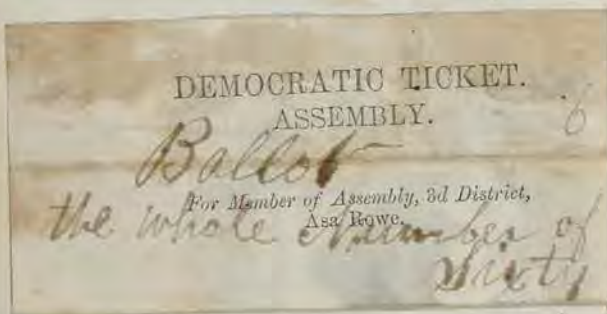 DEMOCRATIC TICKET.
ASSEMBLY.
6
Ballot
For Member of Assembly, 3d District,
Asa Rowe.
the whole Number of
Sixty